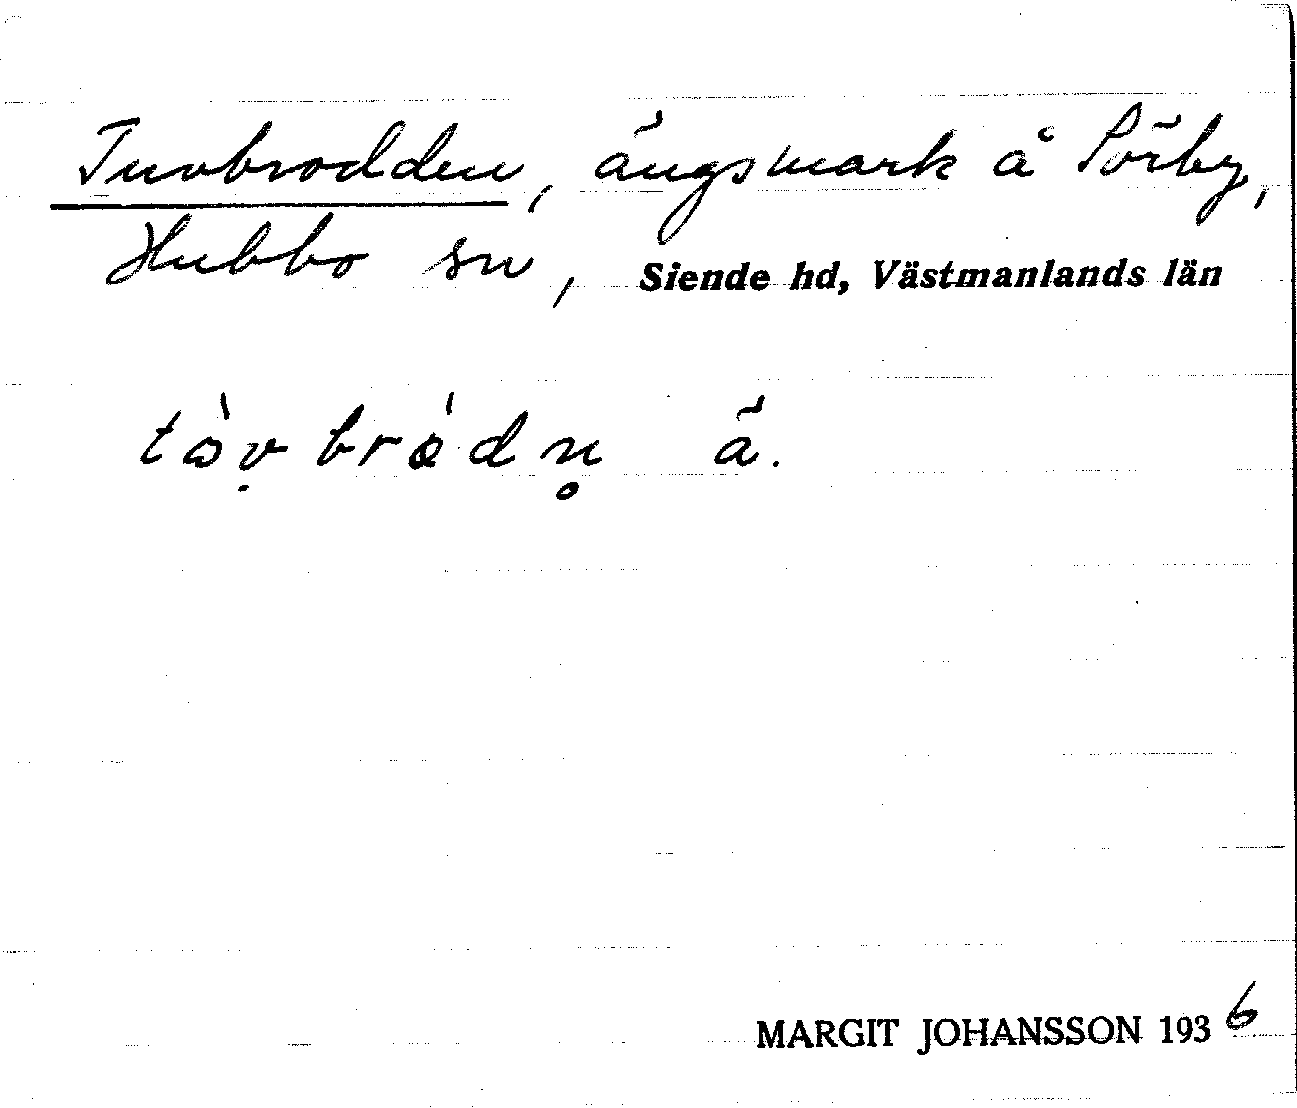 Tuvbrodden, ängsmark å Sörby,
Hubbo sn, Siende hd, Västmanlands län
tòv bròdn̥ ä.
MARGIT JOHANSSON 1936